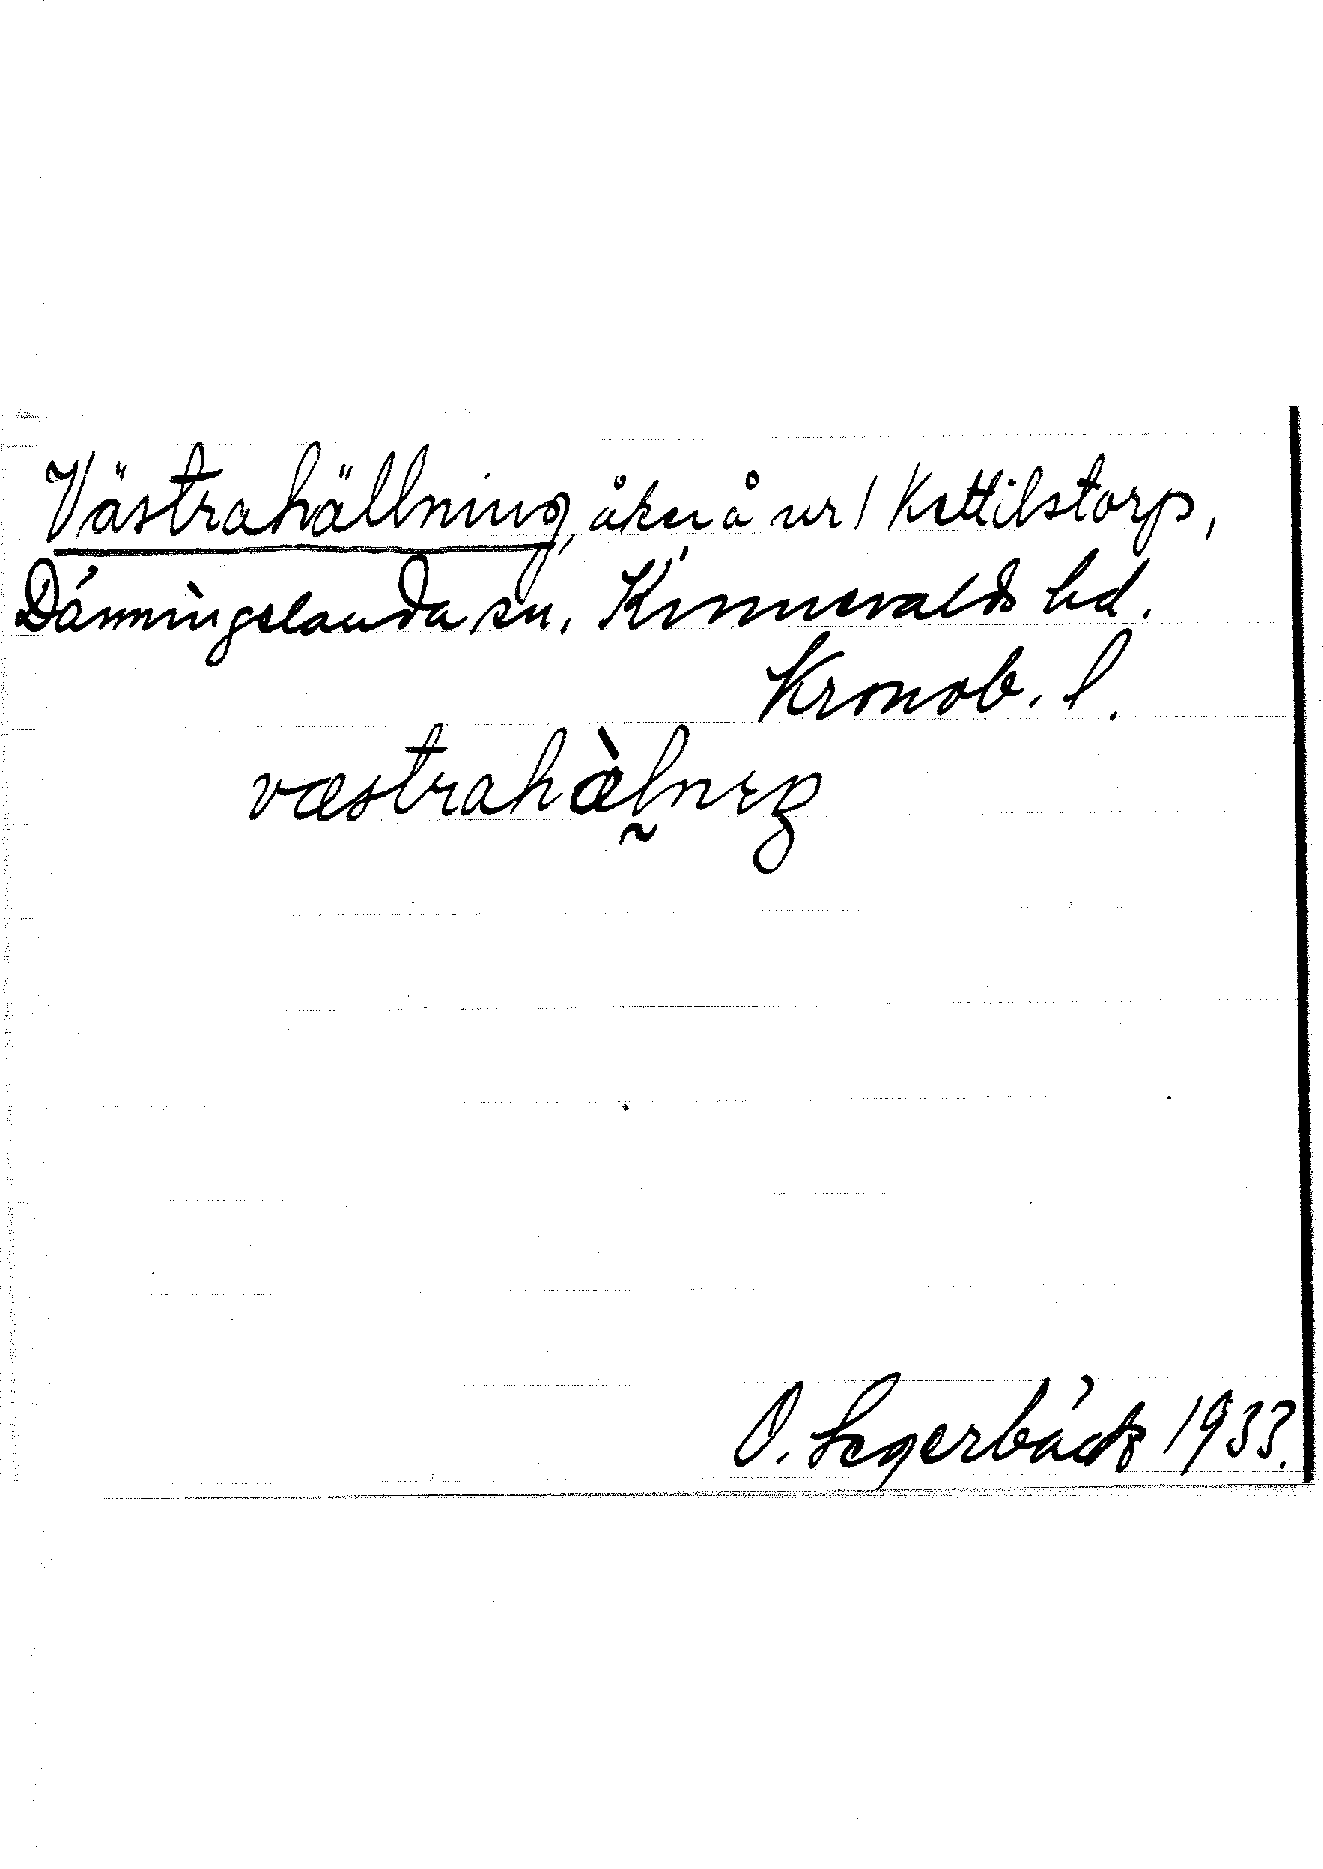 Västrahällning, åker å nr 1 Kettilstorp,
Dänningelanda sn. Kinnevalds hd.
Kronob. l.
O. Segerbäck 1933.